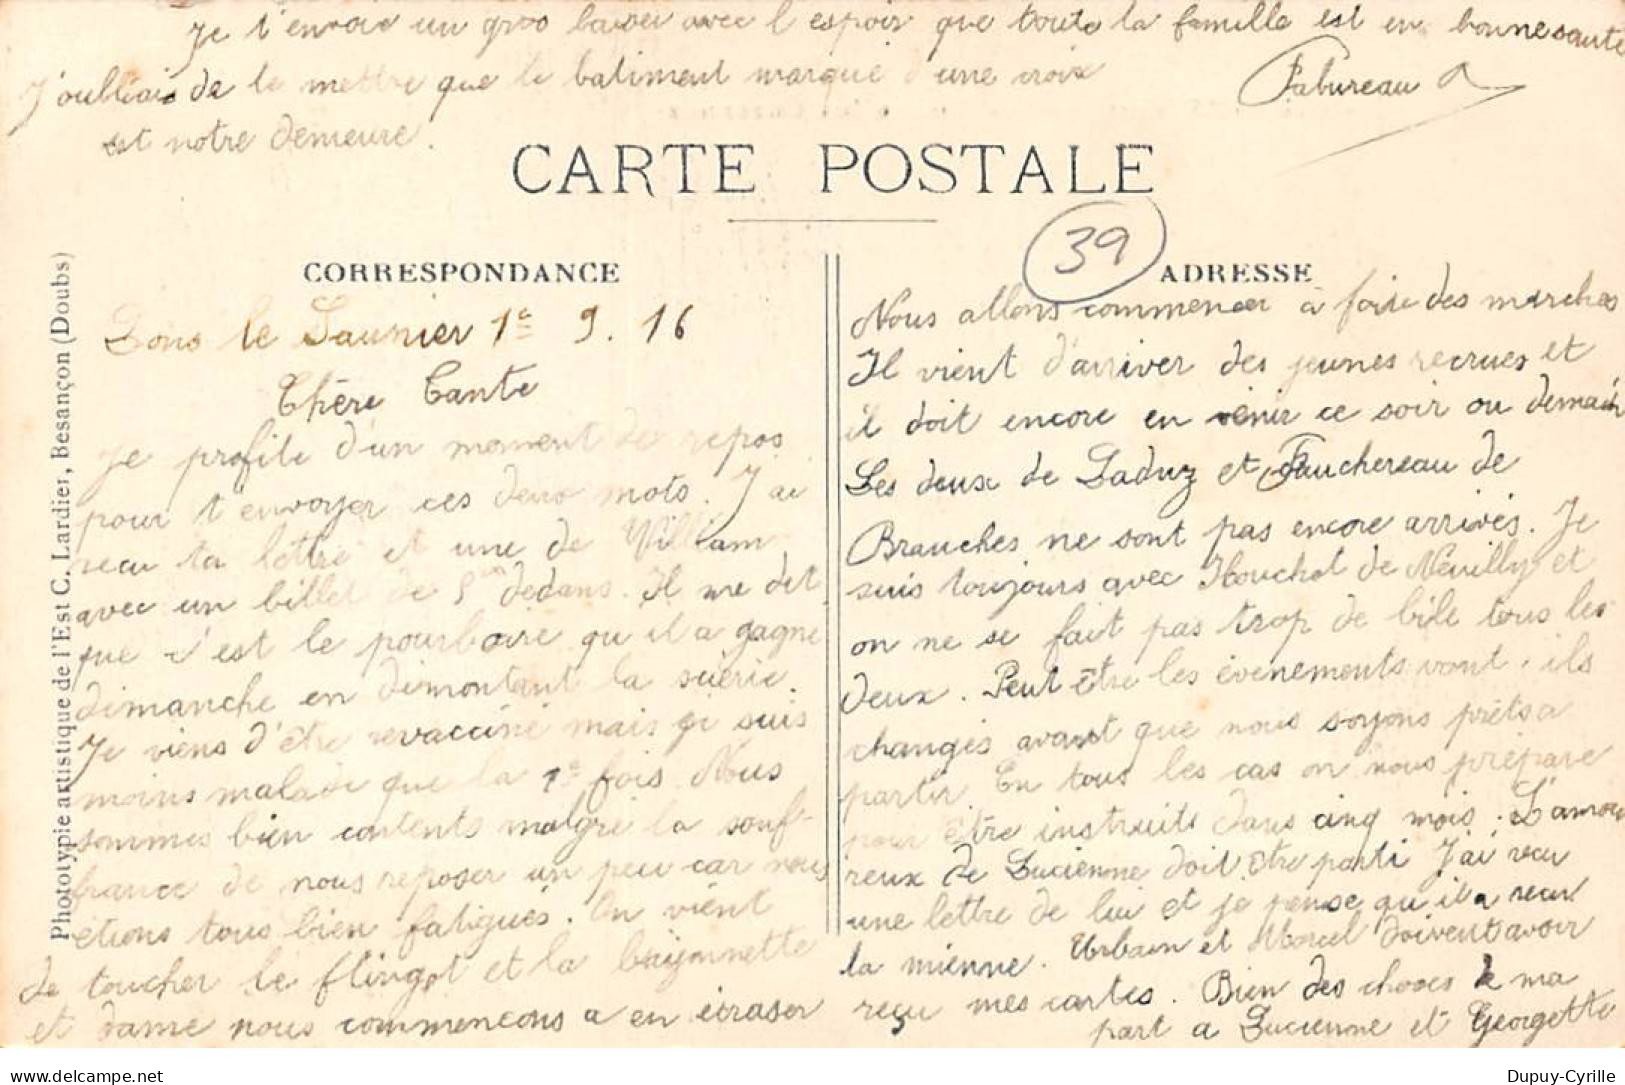 Je t'envoie un gros baiser avec l'espoir que toute la famille est en bonne santé
J'oubliais de te mettre que le batiment marqué d'une croix
est notre demeure.
Pabureau
CARTE POSTALE
39
CORRESPONDANCE
Lons le Saunier 1e 9. 16
Chère Tante
Je profite d'un moment de repos
pour t'envoyer ces deux mots. J'ai
recu ta lettre et une de William
avec un billet de 5 dedans. Il me dit
que c'est le pourboire qu'il a gagné
dimanche en démontant la scierie.
Je viens d'être revacciné mais je suis
moins malade que la 1e fois. Nous
sommes bien contents malgré la souf-
france de nous reposer un peu car nous
étions tous bien fatigués. On vient
de toucher le flingot et la baïonnette
et dame nous commencons a en écraser
ADRESSE
Nous allons commencer à faire des marches
Il vient d'arriver des jeunes recrues et
il doit encore en venir ce soir ou demain
Les deux de Laduz et Fauchereau de
Branches ne sont pas encore arrivés. Je
suis toujours avec Houchot de Neuilly et
on ne se fait pas trop de bile tous les
deux. Peut être les évenements vont ils
changés avant que nous soyons prêts a
partir. En tous les cas on nous prépare
pour être instruits dans cinq mois. L'amou
reux de Lucienne doit être parti J'ai recu
une lettre de lui et je pense qu'il a recu
la mienne. Urbain et Marcel doivent avoir
reçu mes cartes. Bien des choses de ma
part a Lucienne et Georgette
Phototypie artistique de l'Est C. Lardier, Besançon (Doubs)
delcampe.net
Dupuy-Cyrille